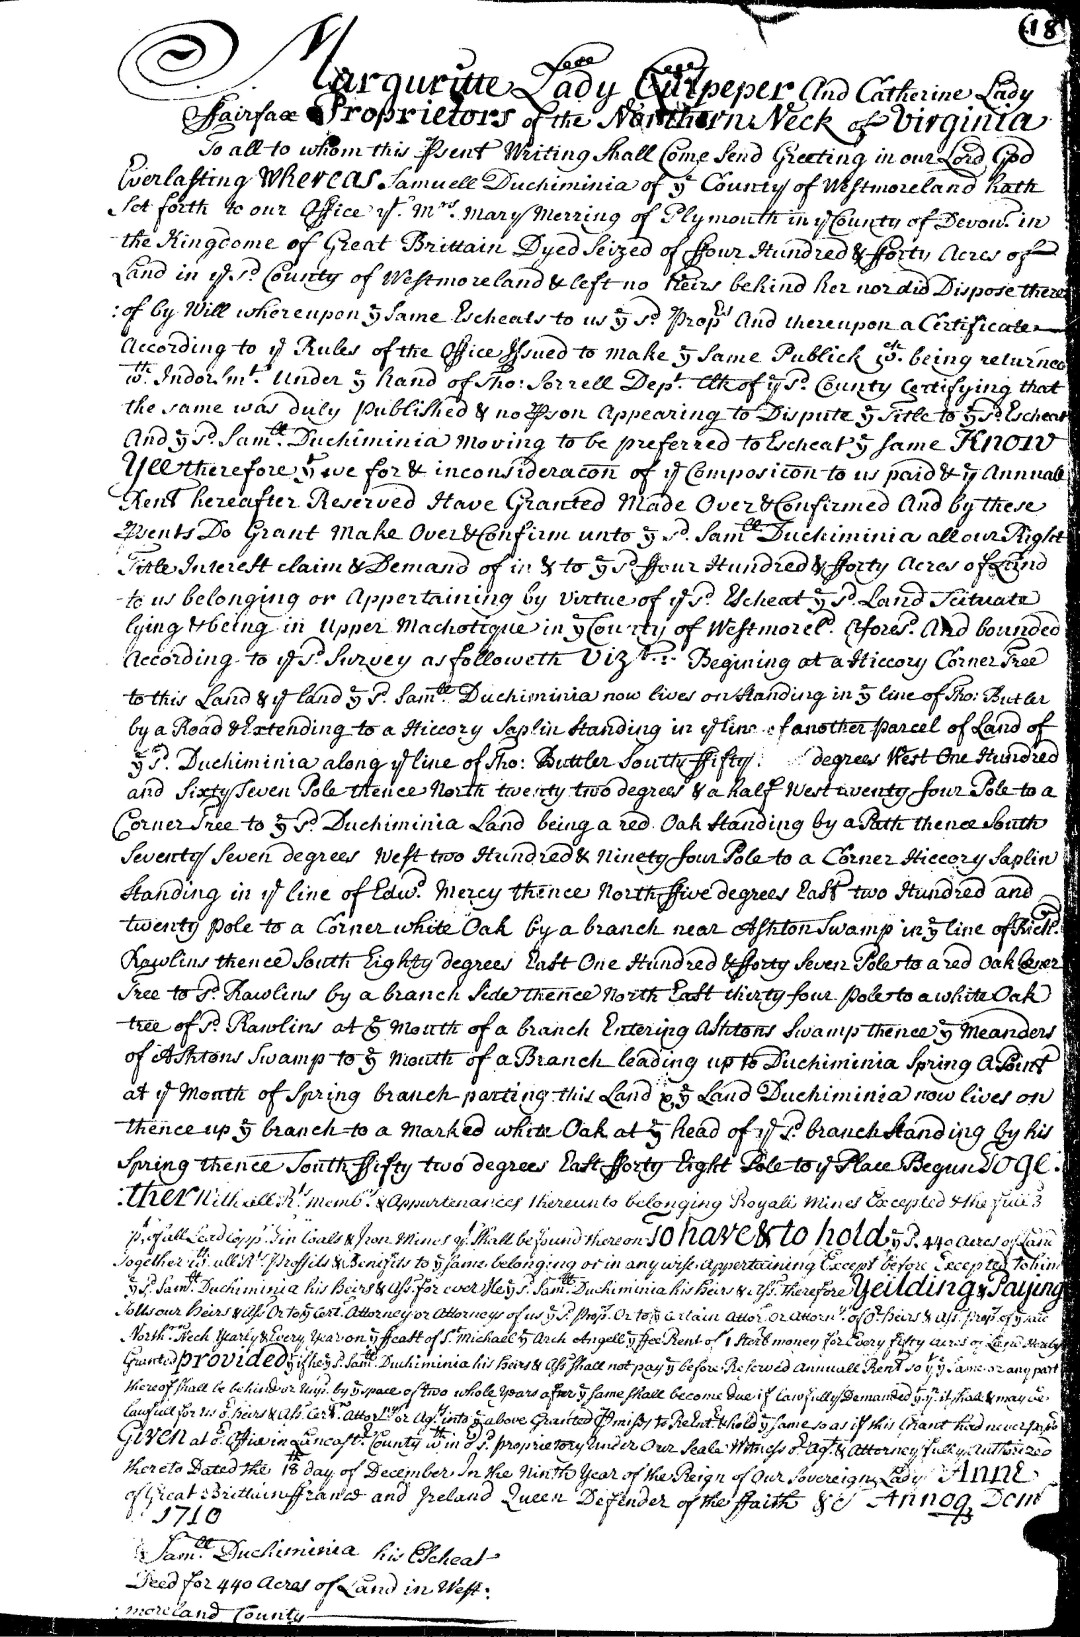 18
Marguritte Lady Culpeper And Catherine Lady
Fairfax Proprietors of the Northern Neck of Virginia
To all to whom this Psent Writing Shall Come Send Greeting in our Lord God
Everlasting Whereas Samuell Duchiminia of ye County of Westmoreland hath
Set forth to our Office yt. Mrs. Mary Merring of Plymouth in ye County of Devon. in
the Kingdome of Great Brittain Dyed Seized of ffour Hundred & fforty Acres of
Land in ye sd. County of Westmoreland & left no heirs behind her nor did Dispose there
:of by Will whereupon ye Same Escheats to us ye sd. Proprs And thereupon a Certificate
According to ye Rules of the Office Issued to make ye Same Publick wch. being returned
wth. Indorsmt. Under ye hand of Tho: Sorrell Dept. Clk of ye sd. County Certifying that
the same was duly Published & no Pson Appearing to Dispute ye Title to ye sd. Escheat
And ye sd. Samll. Duchiminia Moving to be preferred to Escheat ye same Know
Yee therefore yt we for & in consideracon of ye Composicon to us paid & ye Annuall
Rent hereafter Reserved Have Granted Made Over & Confirmed And by these
Psents Do Grant Make Over & Confirm unto ye sd. Samll Duchiminia all our Right
Title Interest claim & Demand of in & to ye sd. ffour Hundred & fforty Acres of Land
to us belonging or Appertaining by virtue of ye sd. Escheat ye sd. Land Scituate
lying & being in Upper Machotique in ye County of Westmoreld. Aforesd. And bounded
According to ye sd. Survey as followeth Vizt.: Begining at a Hiccory Corner Tree
to this Land & ye land ye sd. Samll Duchiminia now lives on Standing in ye line of Tho: Butler
by a Road & Extending to a Hiccory Saplin Standing in ye line of another Parcel of Land of
ye sd. Duchiminia along ye line of Tho: Buttler South ffifty degrees West One Hundred
and Sixty Seven Pole thence North twenty two degrees & a half West twenty four Pole to a
Corner Tree to ye sd. Duchiminia Land being a red Oak Standing by a Path thence South
Seventy Seven degrees West two Hundred & Ninety four Pole to a Corner Hiccory Saplin
Standing in ye line of Edwd. Mercy thence North ffive degrees East two Hundred and
twenty pole to a Corner white Oak by a branch near Ashton Swamp in ye line of Richd.
Rawlins thence South Eighty degrees East One Hundred & fforty Seven Pole to a red Oak Corner
Tree to sd. Rawlins by a branch Side thence North East thirty four pole to a white Oak
tree of sd. Rawlins at ye Mouth of a branch Entering Ashtons Swamp thence ye Meanders
of Ashtons Swamp to ye Mouth of a Branch leading up to Duchiminia Spring A Point
at ye Mouth of Spring branch parting this Land & ye Land Duchiminia now lives on
thence up ye branch to a Marked white Oak at ye head of ye sd. branch Standing by his
Spring thence South ffifty two degrees East fforty Eight Pole to ye Place Begun Toge:
:ther With all Rts. membrs. & Appurtenances thereunto belonging Royall Mines Excepted & the full 3
pt. of all Lead Copp. Tin Coals & Iron Mines yt. Shall be found thereon To have & to hold ye sd. 440 acres of Land
together wth. all Rts Proffits & Benefits to ye same belonging or in any wise Appertaining Except before Excepted To him
ye sd. Samll. Duchiminia his Heirs & Ass. for ever He ye sd. Samll. Duchiminia his heirs & Ass. therefore Yeilding & Paying
To Us our Heirs & Ass Or to ye Cert. Attorney or Attorneys of us ye sd. Proprs. Or to ye Certain Attor. Or Attorn. of or. Heirs & Ass. Proprs. of ye
North. Neck Yearly & Every Year on ye ffeast of St. Michael ye Arch Angell ye ffee Rent of 1 Sterls money for Every fifty acres of Land Hereby
Granted provided yt if he ye sd. Samll. Duchiminia his heirs & Ass Shall not pay ye before Reserved Annuall Rent so yt ye Same or any part
thereof Shall be behind or Unpd. by ye space of two whole Years after ye same Shall become due if Lawfully Demanded yt. yn. it shall & may be
lawfull for us or. heirs & Ass. Cert. Attor. or Agt. into ye above Granted Pmisses to ReEnt. & hold ye same so as if this Grant had never passd
Given at or. Office in Lancastr. County wth in or sd. proprietory Under Our Seale Witness or. Agt. & Attorney fully Authorized
thereto Dated the 18th day of December In the Ninth Year of the Reign of Our Sovereign Lady Anne
of Great Brittain ffrance and Ireland Queen Defender of the ffaith &c Annoq Dom
1710
Samll. Duchiminia his Escheat
Deed for 440 Acres of Land in West:
:moreland County